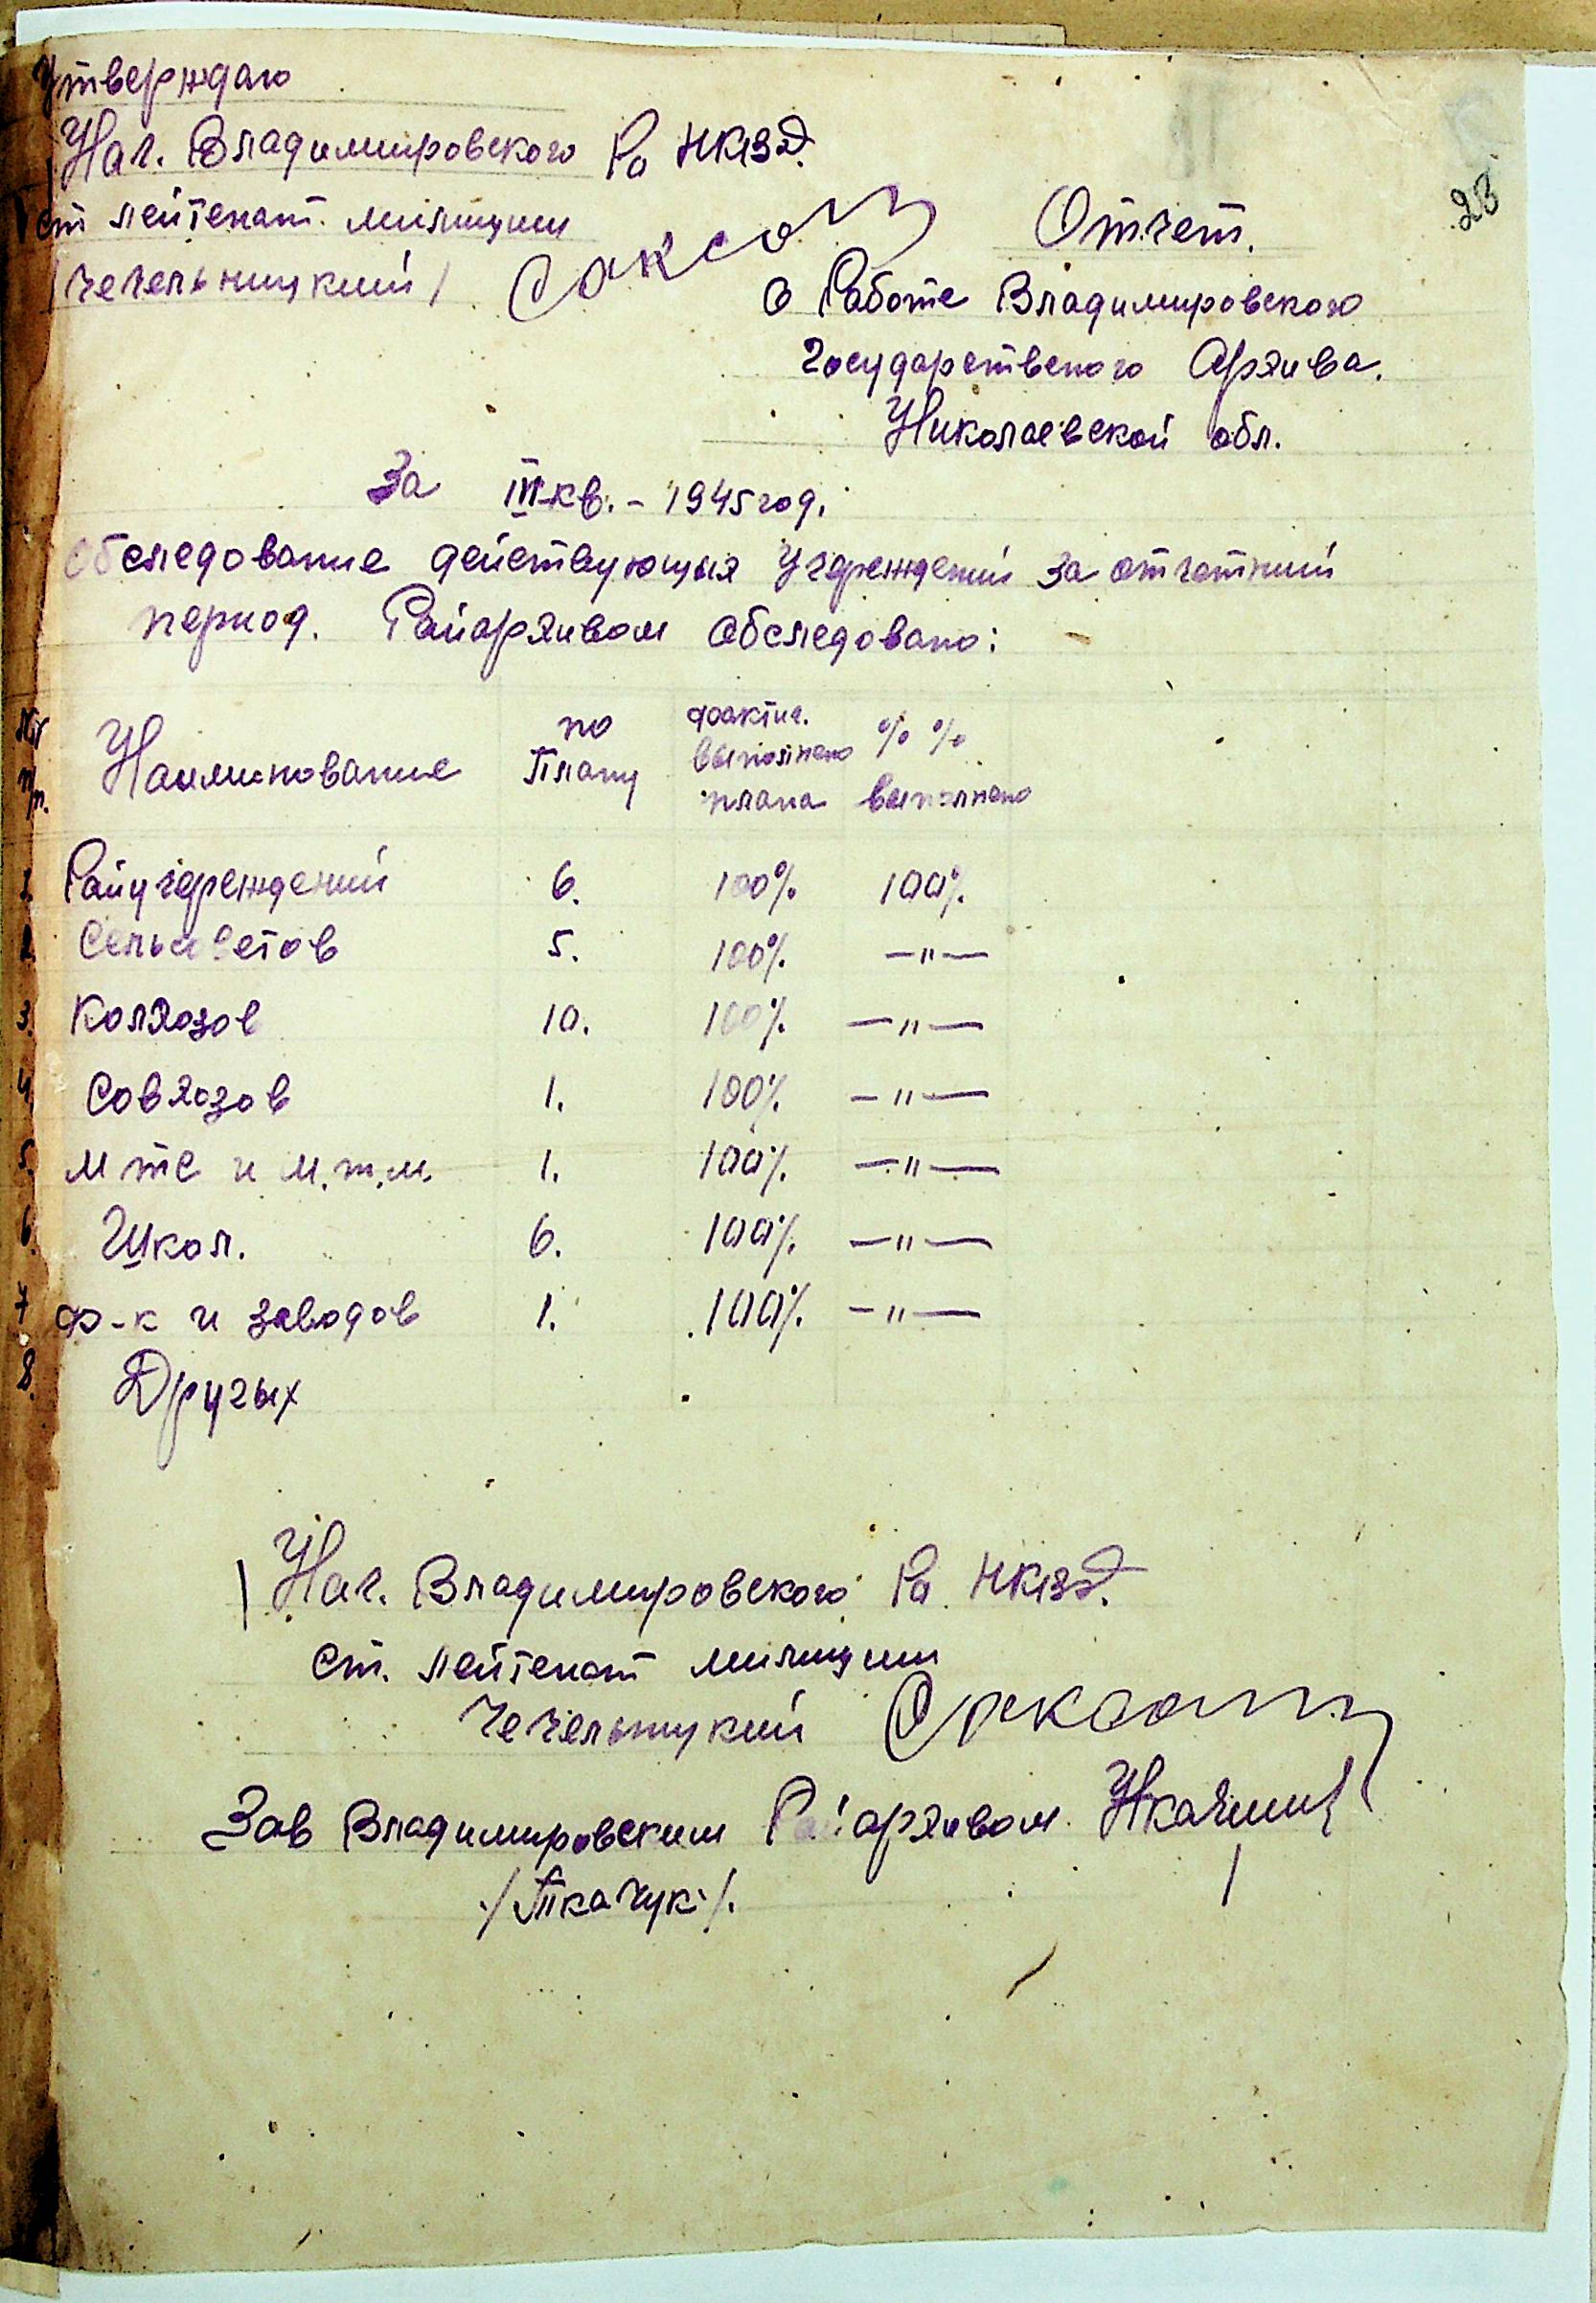 Утверждаю
Нач. Владимировского Ро НКВД.
ст лейтенант. милиции
/Чечельницкий/
23
Отчет.
О Работе Владимировского
Государственого Архива.
Николаевской обл.
За III кв. - 1945 год.
Обследование действующих Учреждений за отчетний
период. Райархивом обследовано:
№№ п/п. Наименование по Плану фактич. выполнено плана % % выполнено
1. Райучреждений 6. 100% 100%
2. Сельсоветов 5. 100% —"—
3. Колхозов 10. 100% —"—
4. Совхозов 1. 100% —"—
5. МТС и М.Т.М. 1. 100% —"—
6. Школ. 6. 100% —"—
7 Ф-к и заводов 1. 100% —"—
8. Других
Нач. Владимировского Ро НКВД.
ст. лейтенант милиции
Чечельницкий
Зав Владимировским Райархивом.
/Ткачук/.